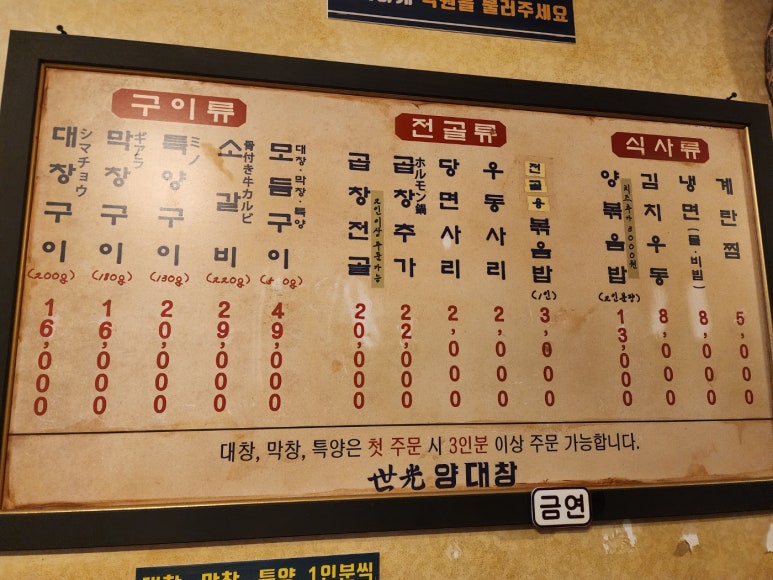 직원을 불러주세요
구이류
대창구이 シマチョウ (200g) 16,000
막창구이 ギアラ (180g) 16,000
특양구이 ミノ (130g) 20,000
소갈비 骨付き牛カルビ (220g) 29,000
모듬구이 대창·막창·특양 49,000
전골류
곱창전골 2인이상 주문가능 20,000
곱창추가 ホルモン鍋 22,000
당면사리 2,000
우동사리 2,000
전골용 볶음밥 (1인) 3,000
식사류
양볶음밥 치즈추가 3000원 (2인분량) 13,000
김치우동 8,000
냉면(물·비빔) 8,000
계란찜 5,000
대창, 막창, 특양은 첫 주문 시 3인분 이상 주문 가능합니다.
世光 양대창
금연
대창, 막창, 특양 1인분씩